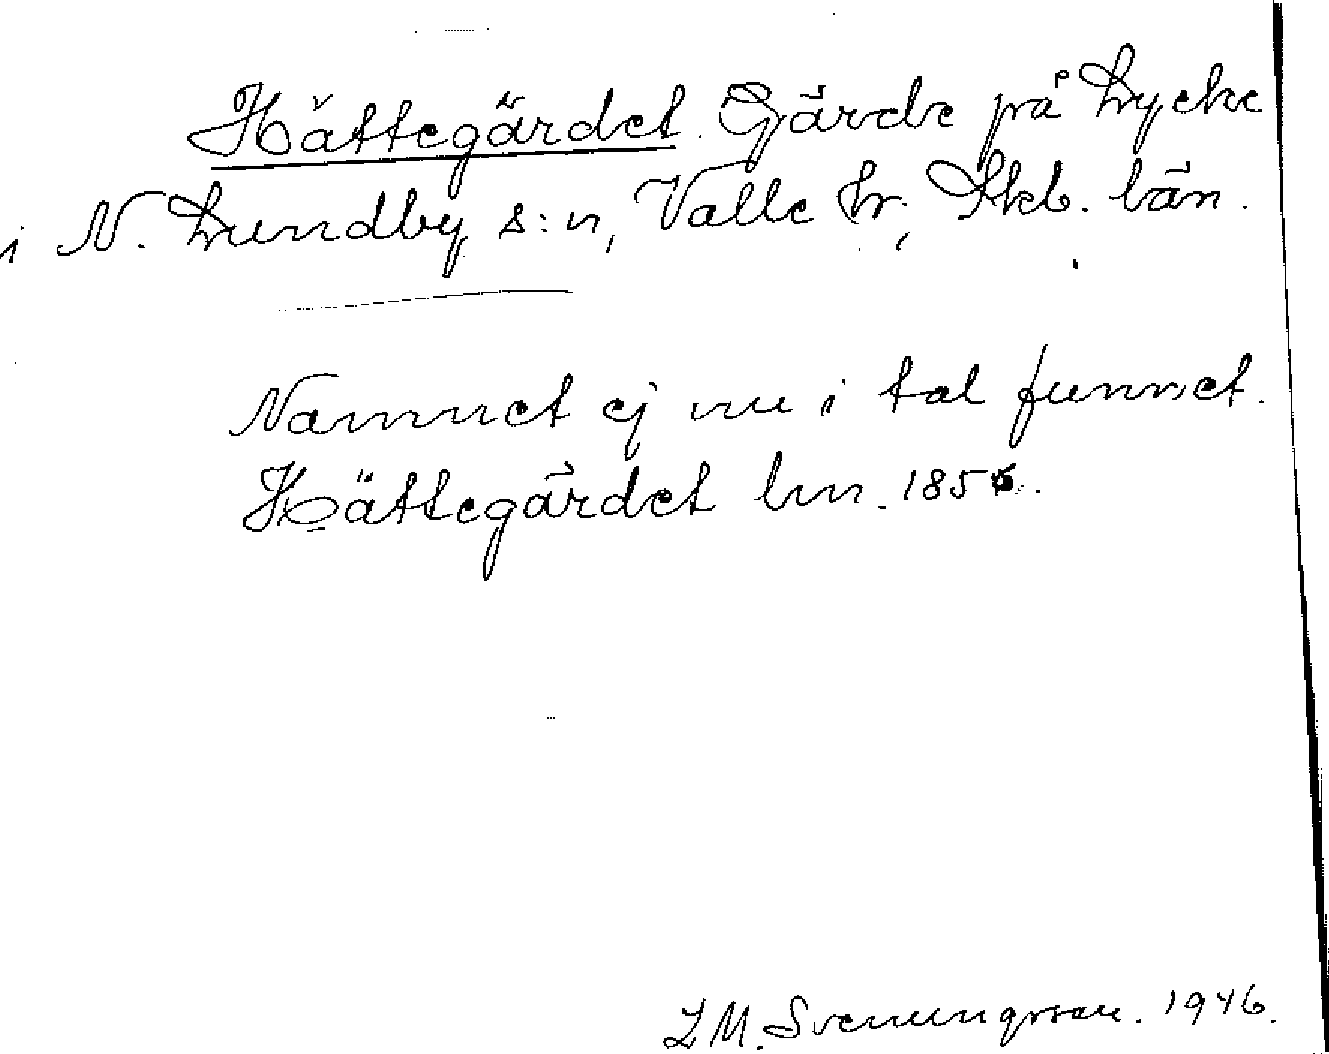 Hättegärdet. Gärde på Lycke
i N. Lundby s:n, Valle hr, Skb. län.
Namnet ej nu i tal funnet.
Hättegärdet lm. 1856.
L M. Svenungsson. 1946.